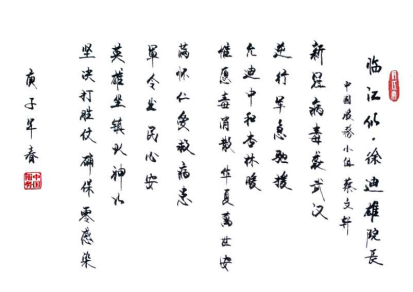 临江仙·徐迪雄院长
中国服务小伍 蔡文轩
新冠病毒袭武汉
逆行军急驰援
允迪中和杏林暖
惟愿毒消散 华夏万世安
满怀仁爱救病患
军令出 民心安
英雄坐镇队神
坚决打胜仗 确保零感染
庚子年春